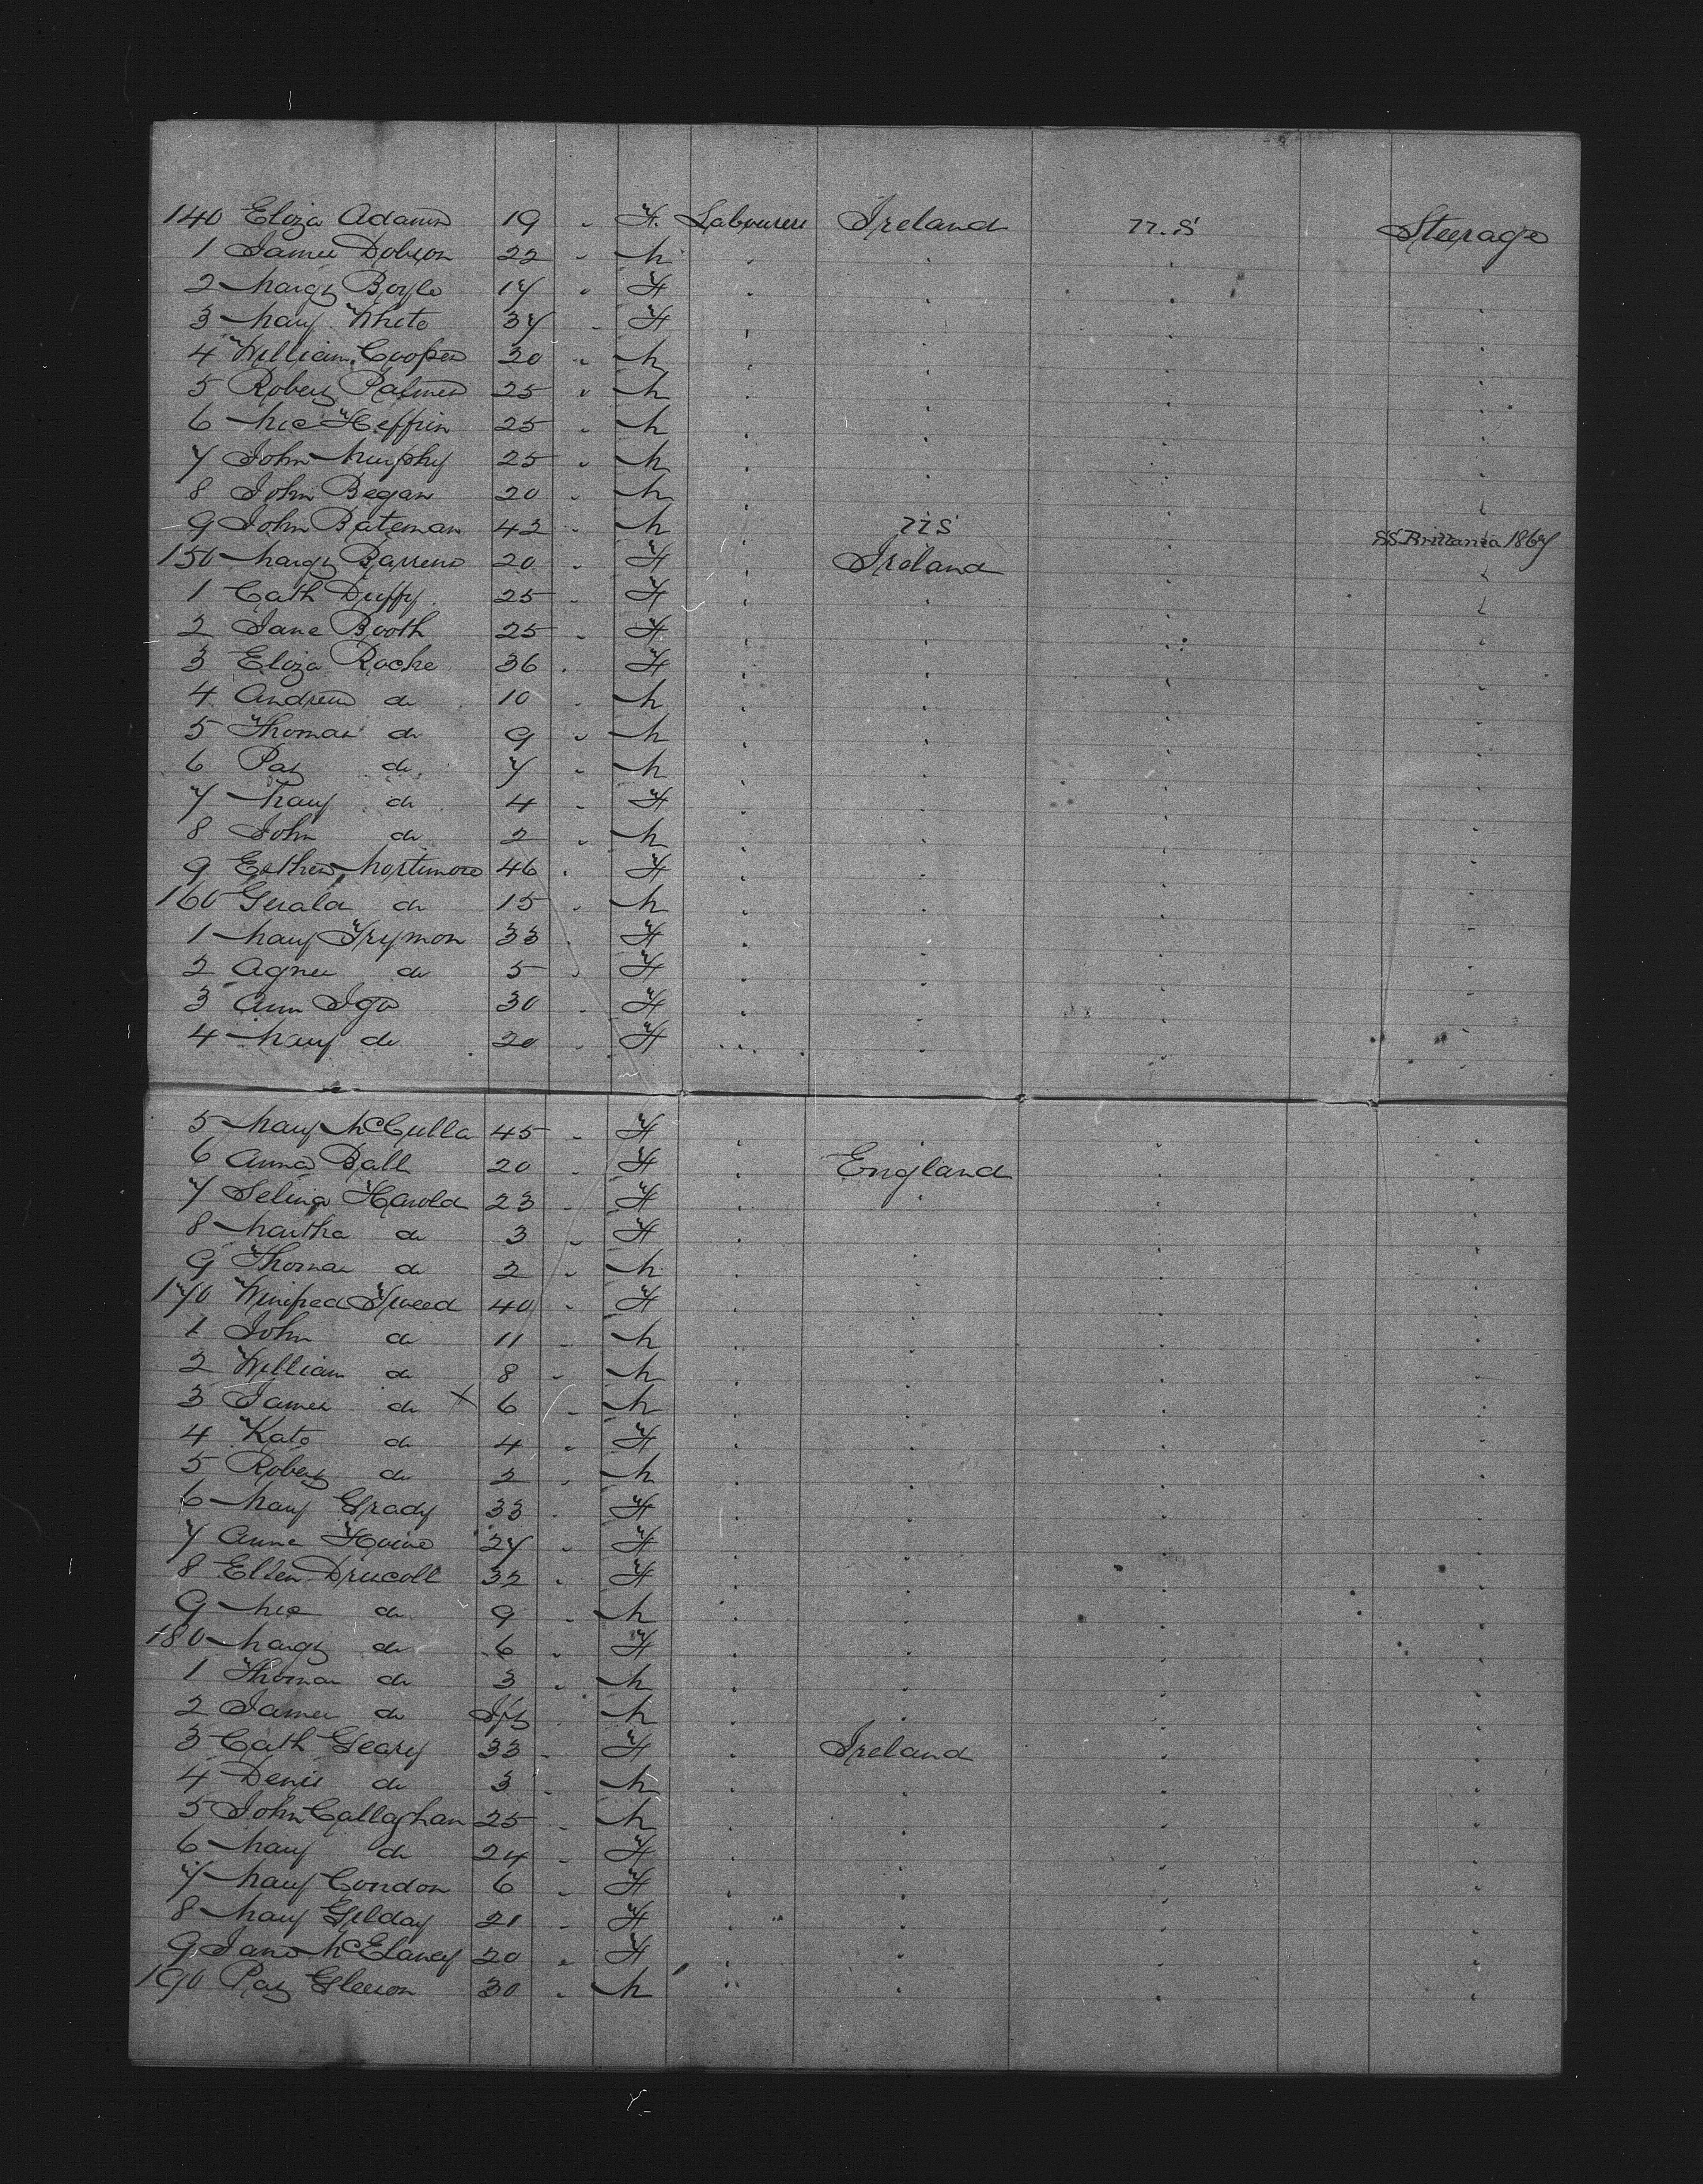 140 Eliza Adams 19 " F. Labourers Ireland U.S Steerage
1 James Dobson 22 " M " " " "
2 Margt Boyle 17 " F " " " "
3 Mary White 37 " F " " " "
4 William Cooper 20 " M " " " "
5 Robert Palmer 25 " M " " " "
6 Mic Heffrin 25 " M " " " "
7 John Murphy 25 " M " " " "
8 John Began 20 " M " " " "
9 John Bateman 42 " M " US " "
SS Brittania 1867
150 Margt 20 " F " Ireland " "
1 Cath Duffy 25 " F " " " "
2 Jane Booth 25 " F " " " "
3 Eliza Roche 36 " F " " " "
4 Andrew do 10 " M " " " "
5 Thomas do 9 " M " " " "
6 Pat do 7 " M " " " "
7 Mary do 4 " F " " " "
8 John do 2 " M " " " "
9 Esther Mortimore 46 " F " " " "
160 Gerald do 15 " M " " " "
1 Mary Frymon 33 " F " " " "
2 Agnes do 5 " F " " " "
3 Ann Igo 30 " F " " " "
4 Mary do 20 " F " " " "
5 Mary McCulla 45 " F " " " "
6 Anna Ball 20 " F " England " "
7 Selina Harold 23 " F " " " "
8 Martha do 3 " F " " " "
9 Thomas do 2 " M " " " "
170 Winifred Tweed 40 " F " " " "
1 John do 11 " M " " " "
2 William do 8 " M " " " "
3 James do X 6 " M " " " "
4 Kate do 4 " F " " " "
5 Robert do 2 " M " " " "
6 Mary Grady 33 " F " " " "
7 Anne 27 " F " " " "
8 Ellen Driscoll 32 " F " " " "
9 Mic do 9 " M " " " "
180 Margt do 6 " F " " " "
1 Thomas do 3 " M " " " "
2 James do Ift " M " " " "
3 Cath Geary 33 " F " Ireland " "
4 Denis do 3 " M " " " "
5 John Callaghan 25 " M " " " "
6 Mary do 24 " F " " " "
7 Mary Condon 6 " F " " " "
8 Mary Gilday 21 " F " " " "
9 Jane McElaney 20 " F " " " "
190 Pat Gleeson 30 " M " " " "